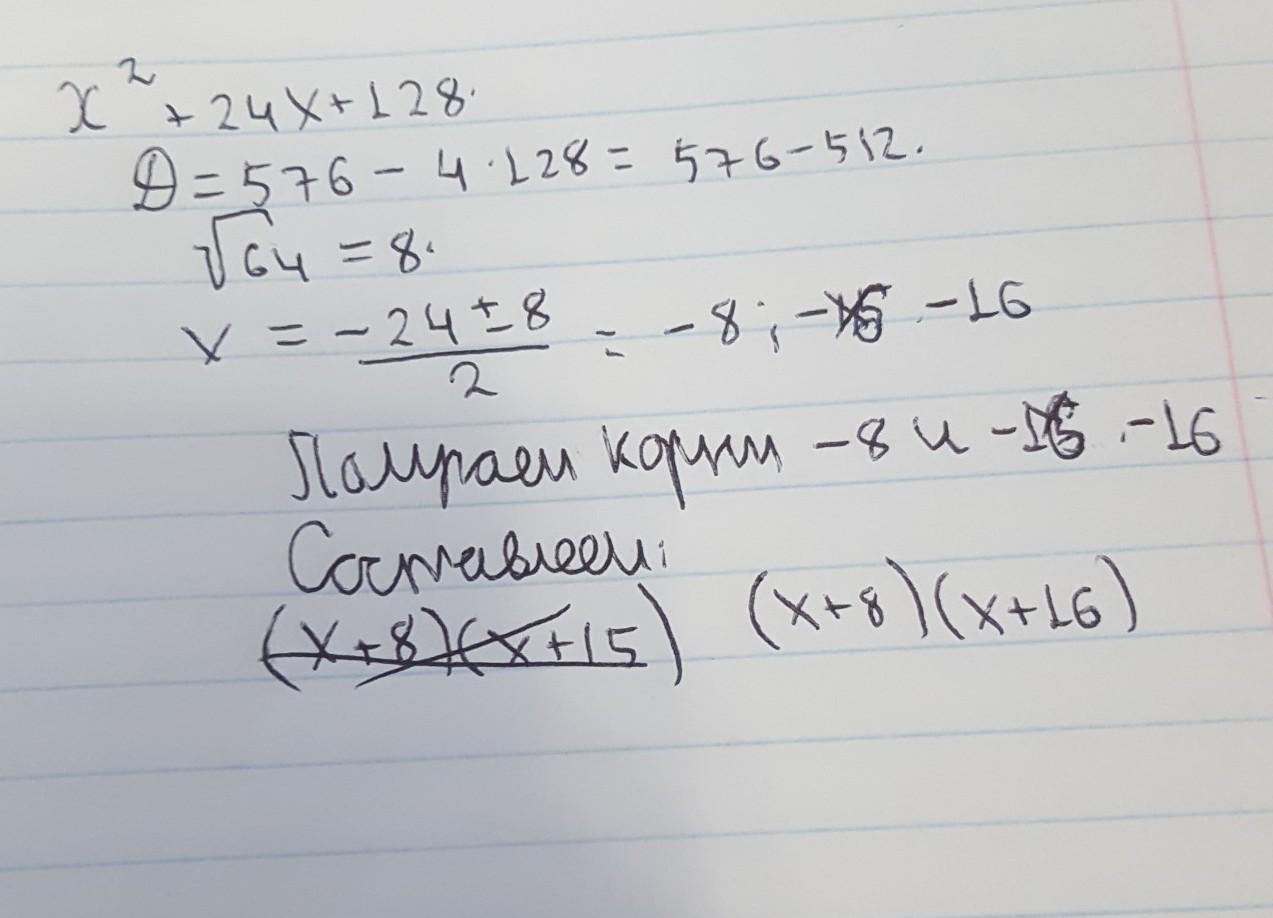 x² + 24x + 128.
D = 576 - 4 · 128 = 576 - 512.
√64 = 8.
x = -24 ± 8 / 2 = -8; -16
Получаем корни -8 и -16
Составляем:
(x+8)(x+15) (x+8)(x+16)